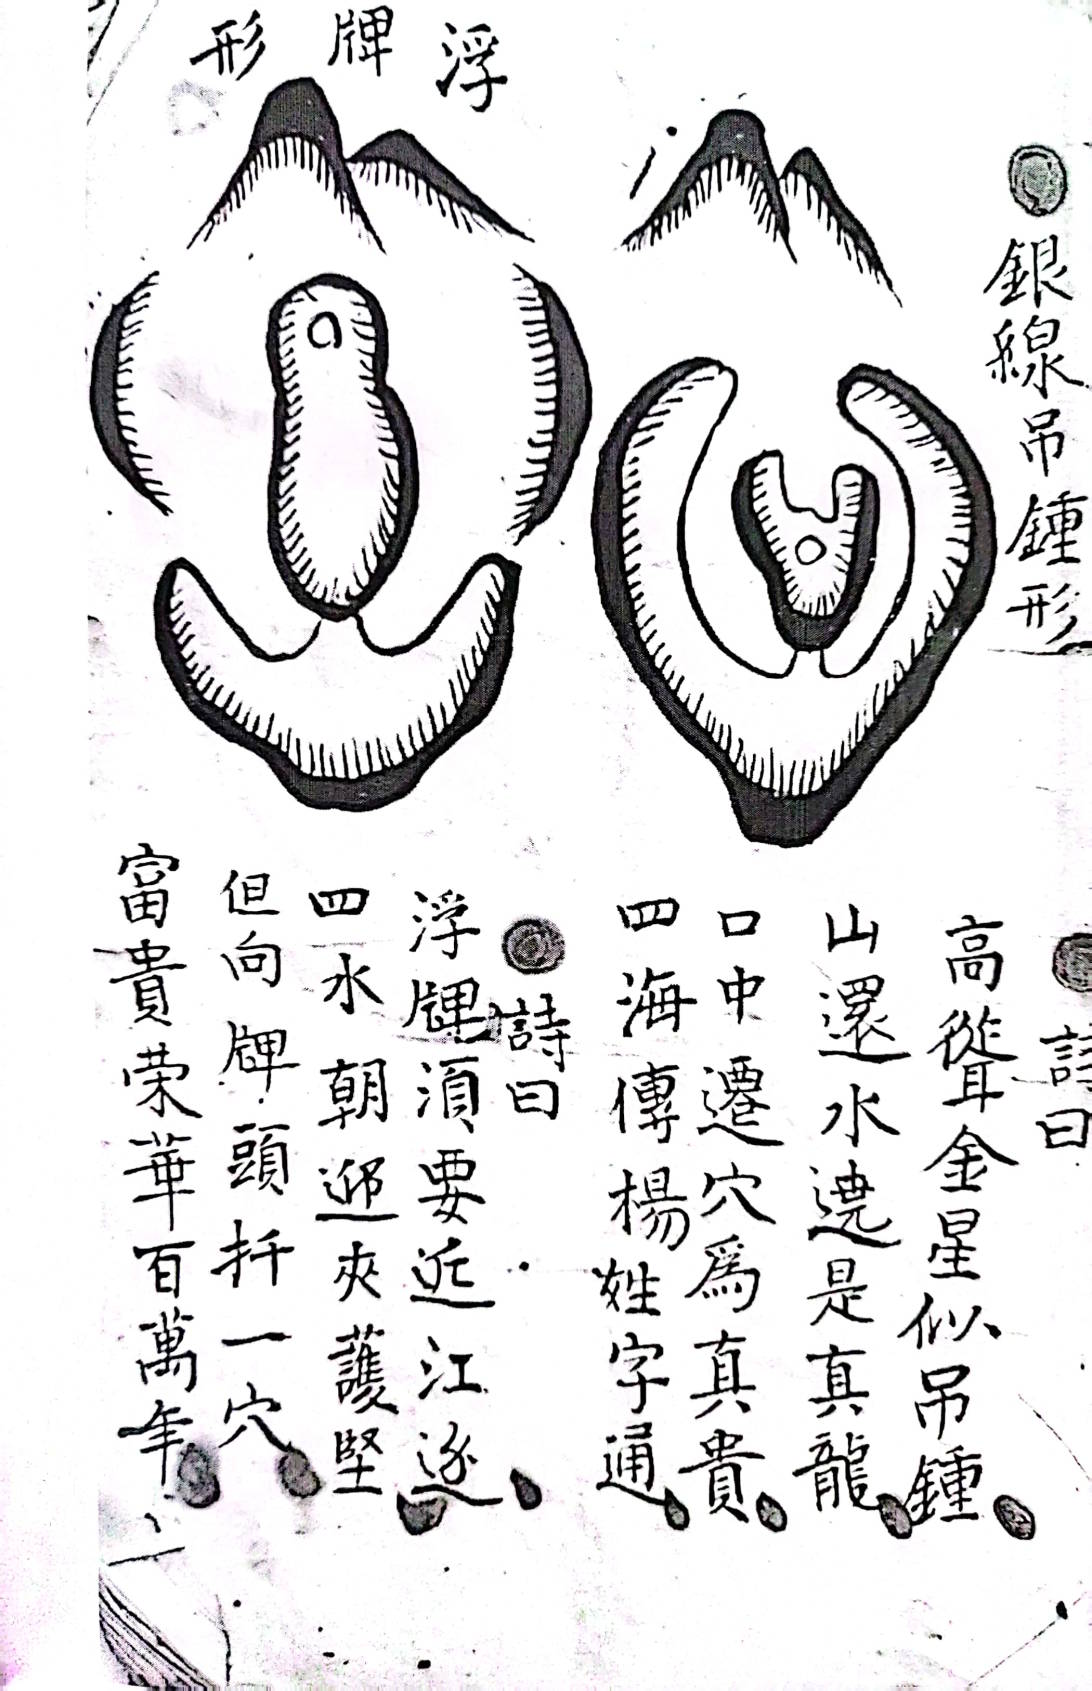 銀線吊鍾形
詩曰
高聳金星似吊鍾
山還水遶是真龍
口中遷穴爲真貴
四海傳楊姓字通
浮牌形
詩曰
浮牌須要近江边
四水朝迎夾護堅
但向牌頭扦一穴
富貴荣華百萬年